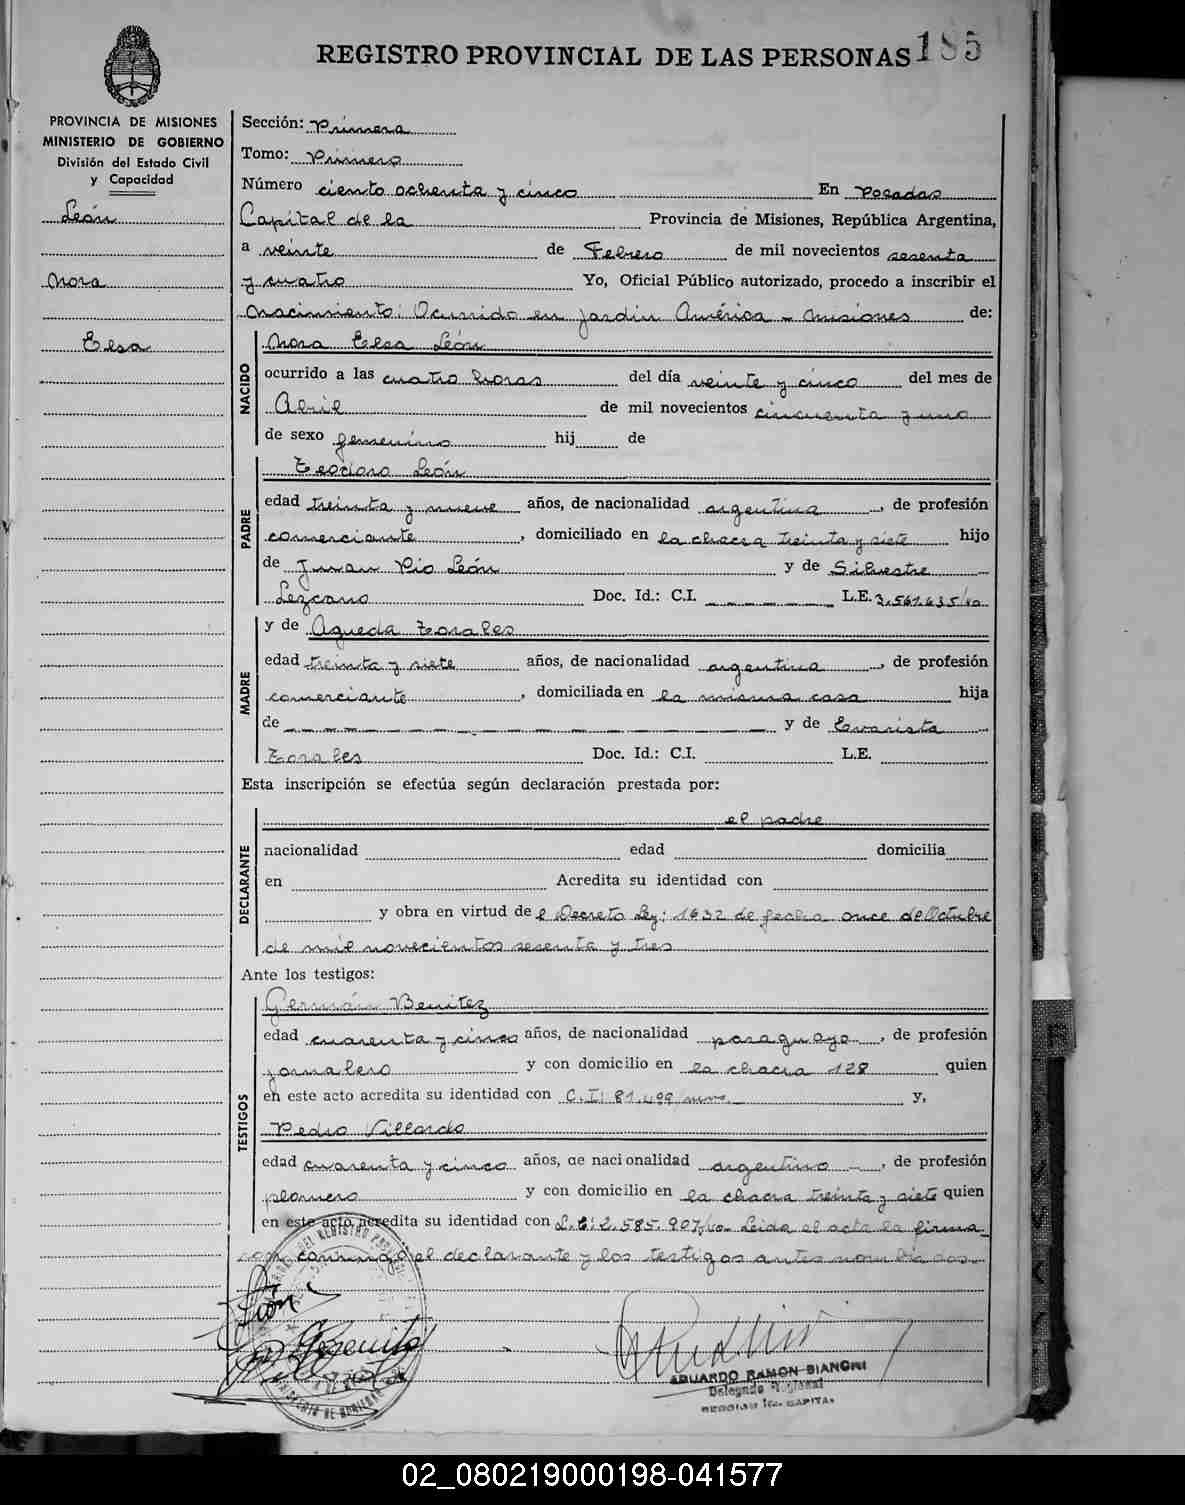 REGISTRO PROVINCIAL DE LAS PERSONAS 185
PROVINCIA DE MISIONES
MINISTERIO DE GOBIERNO
División del Estado Civil
y Capacidad
León
Nora
Elsa
Sección: Primera
Tomo: Primero
Número ciento ochenta y cinco En Posadas
Capital de la Provincia de Misiones, República Argentina,
a veinte de Febrero de mil novecientos sesenta
y cuatro Yo, Oficial Público autorizado, procedo a inscribir el
Nacimiento: Ocurrido en Jardín América - Misiones de:
NACIDO
Nora Elsa León
ocurrido a las cuatro horas del día veinte y cinco del mes de
Abril de mil novecientos cincuenta y uno
de sexo femenino hij de
PADRE
Teodoro León
edad treinta y nueve años, de nacionalidad argentina, de profesión
comerciante, domiciliado en la chacra treinta y siete hijo
de Juan Pio León y de Silvestre
Lezcano Doc. Id.: C.I. L.E. 3.561.635/40
MADRE
y de Agueda Torales
edad treinta y siete años, de nacionalidad argentina, de profesión
comerciante, domiciliada en la misma casa hija
de y de Evarista
Torales Doc. Id.: C.I. L.E.
Esta inscripción se efectúa según declaración prestada por:
DECLARANTE
el padre
nacionalidad edad domicilia
en Acredita su identidad con
y obra en virtud de l Decreto Ley: 1632 de fecha once de Octubre
de mil novecientos sesenta y tres
Ante los testigos:
TESTIGOS
Germán Benitez
edad cuarenta y cinco años, de nacionalidad paraguayo, de profesión
jornalero y con domicilio en la chacra 128 quien
en este acto acredita su identidad con C.I: 81.499 y,
Pedro Villardo
edad cuarenta y cinco años, de nacionalidad argentino, de profesión
plomero y con domicilio en la chacra treinta y siete quien
en este acto acredita su identidad con L.E: 2.585.907/40 Leida el acta la firma
con conmigo el declarante y los testigos antes nombrados.
León
EDUARDO RAMON BIANCHI
Delegado Regional
02_080219000198-041577